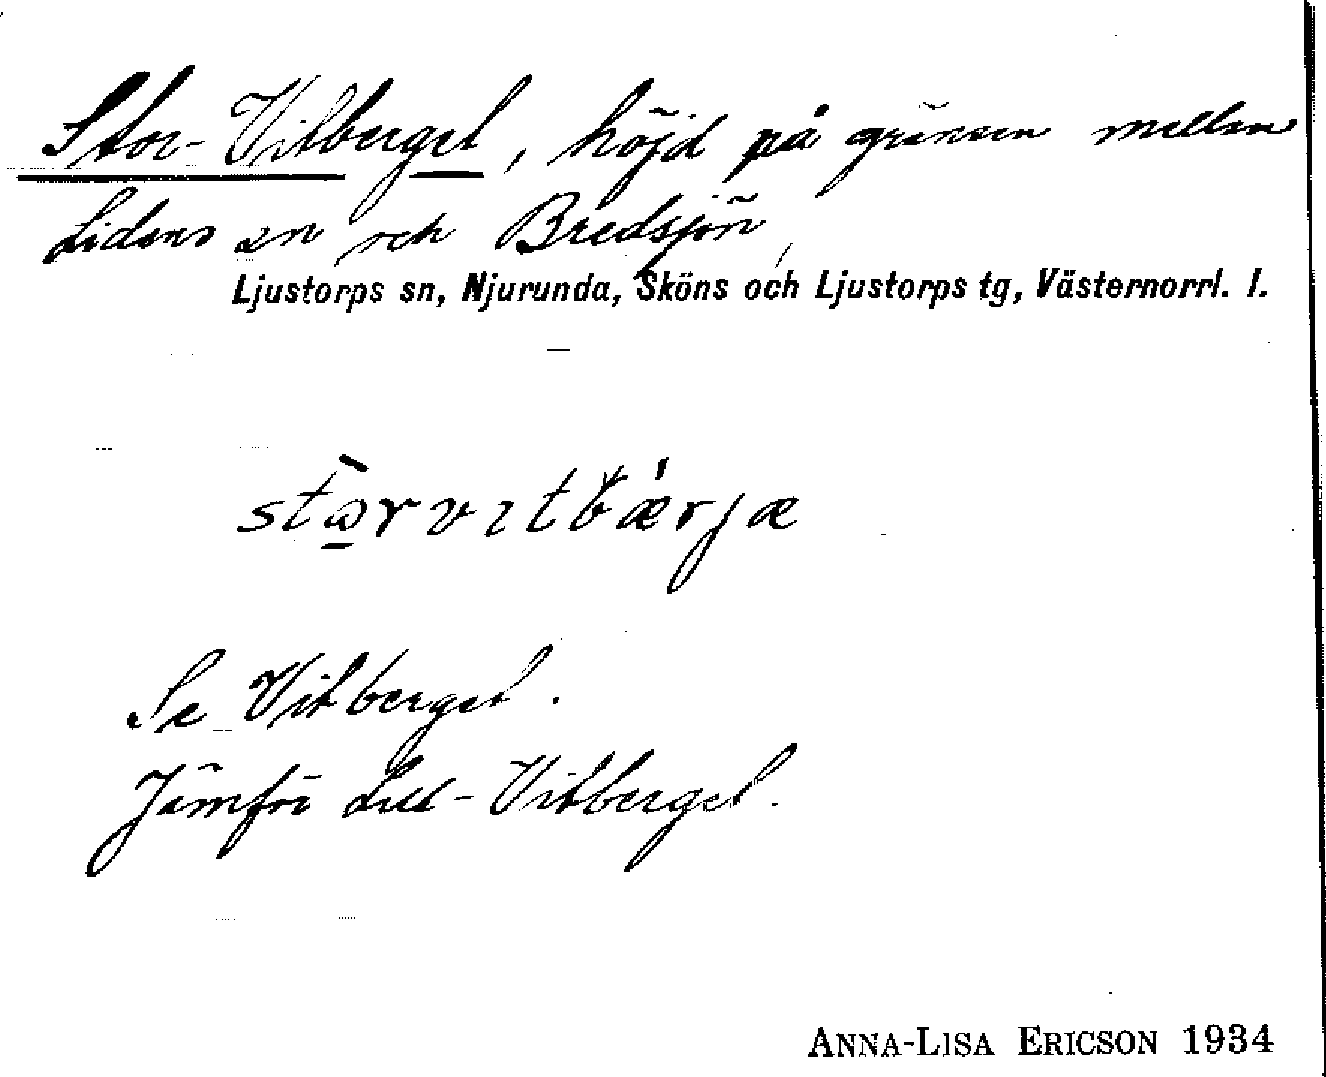 Stor-Vitberget, höjd på gränsen mellan
Lidens sn och Bredsjön,
Ljustorps sn, Njurunda, Sköns och Ljustorps tg, Västernorrl. l.
stὼ̠rvıtb̆ǽrjæ
Se Vitberget.
Jämför Lill-Vitberget.
ANNA-LISA ERICSON 1934